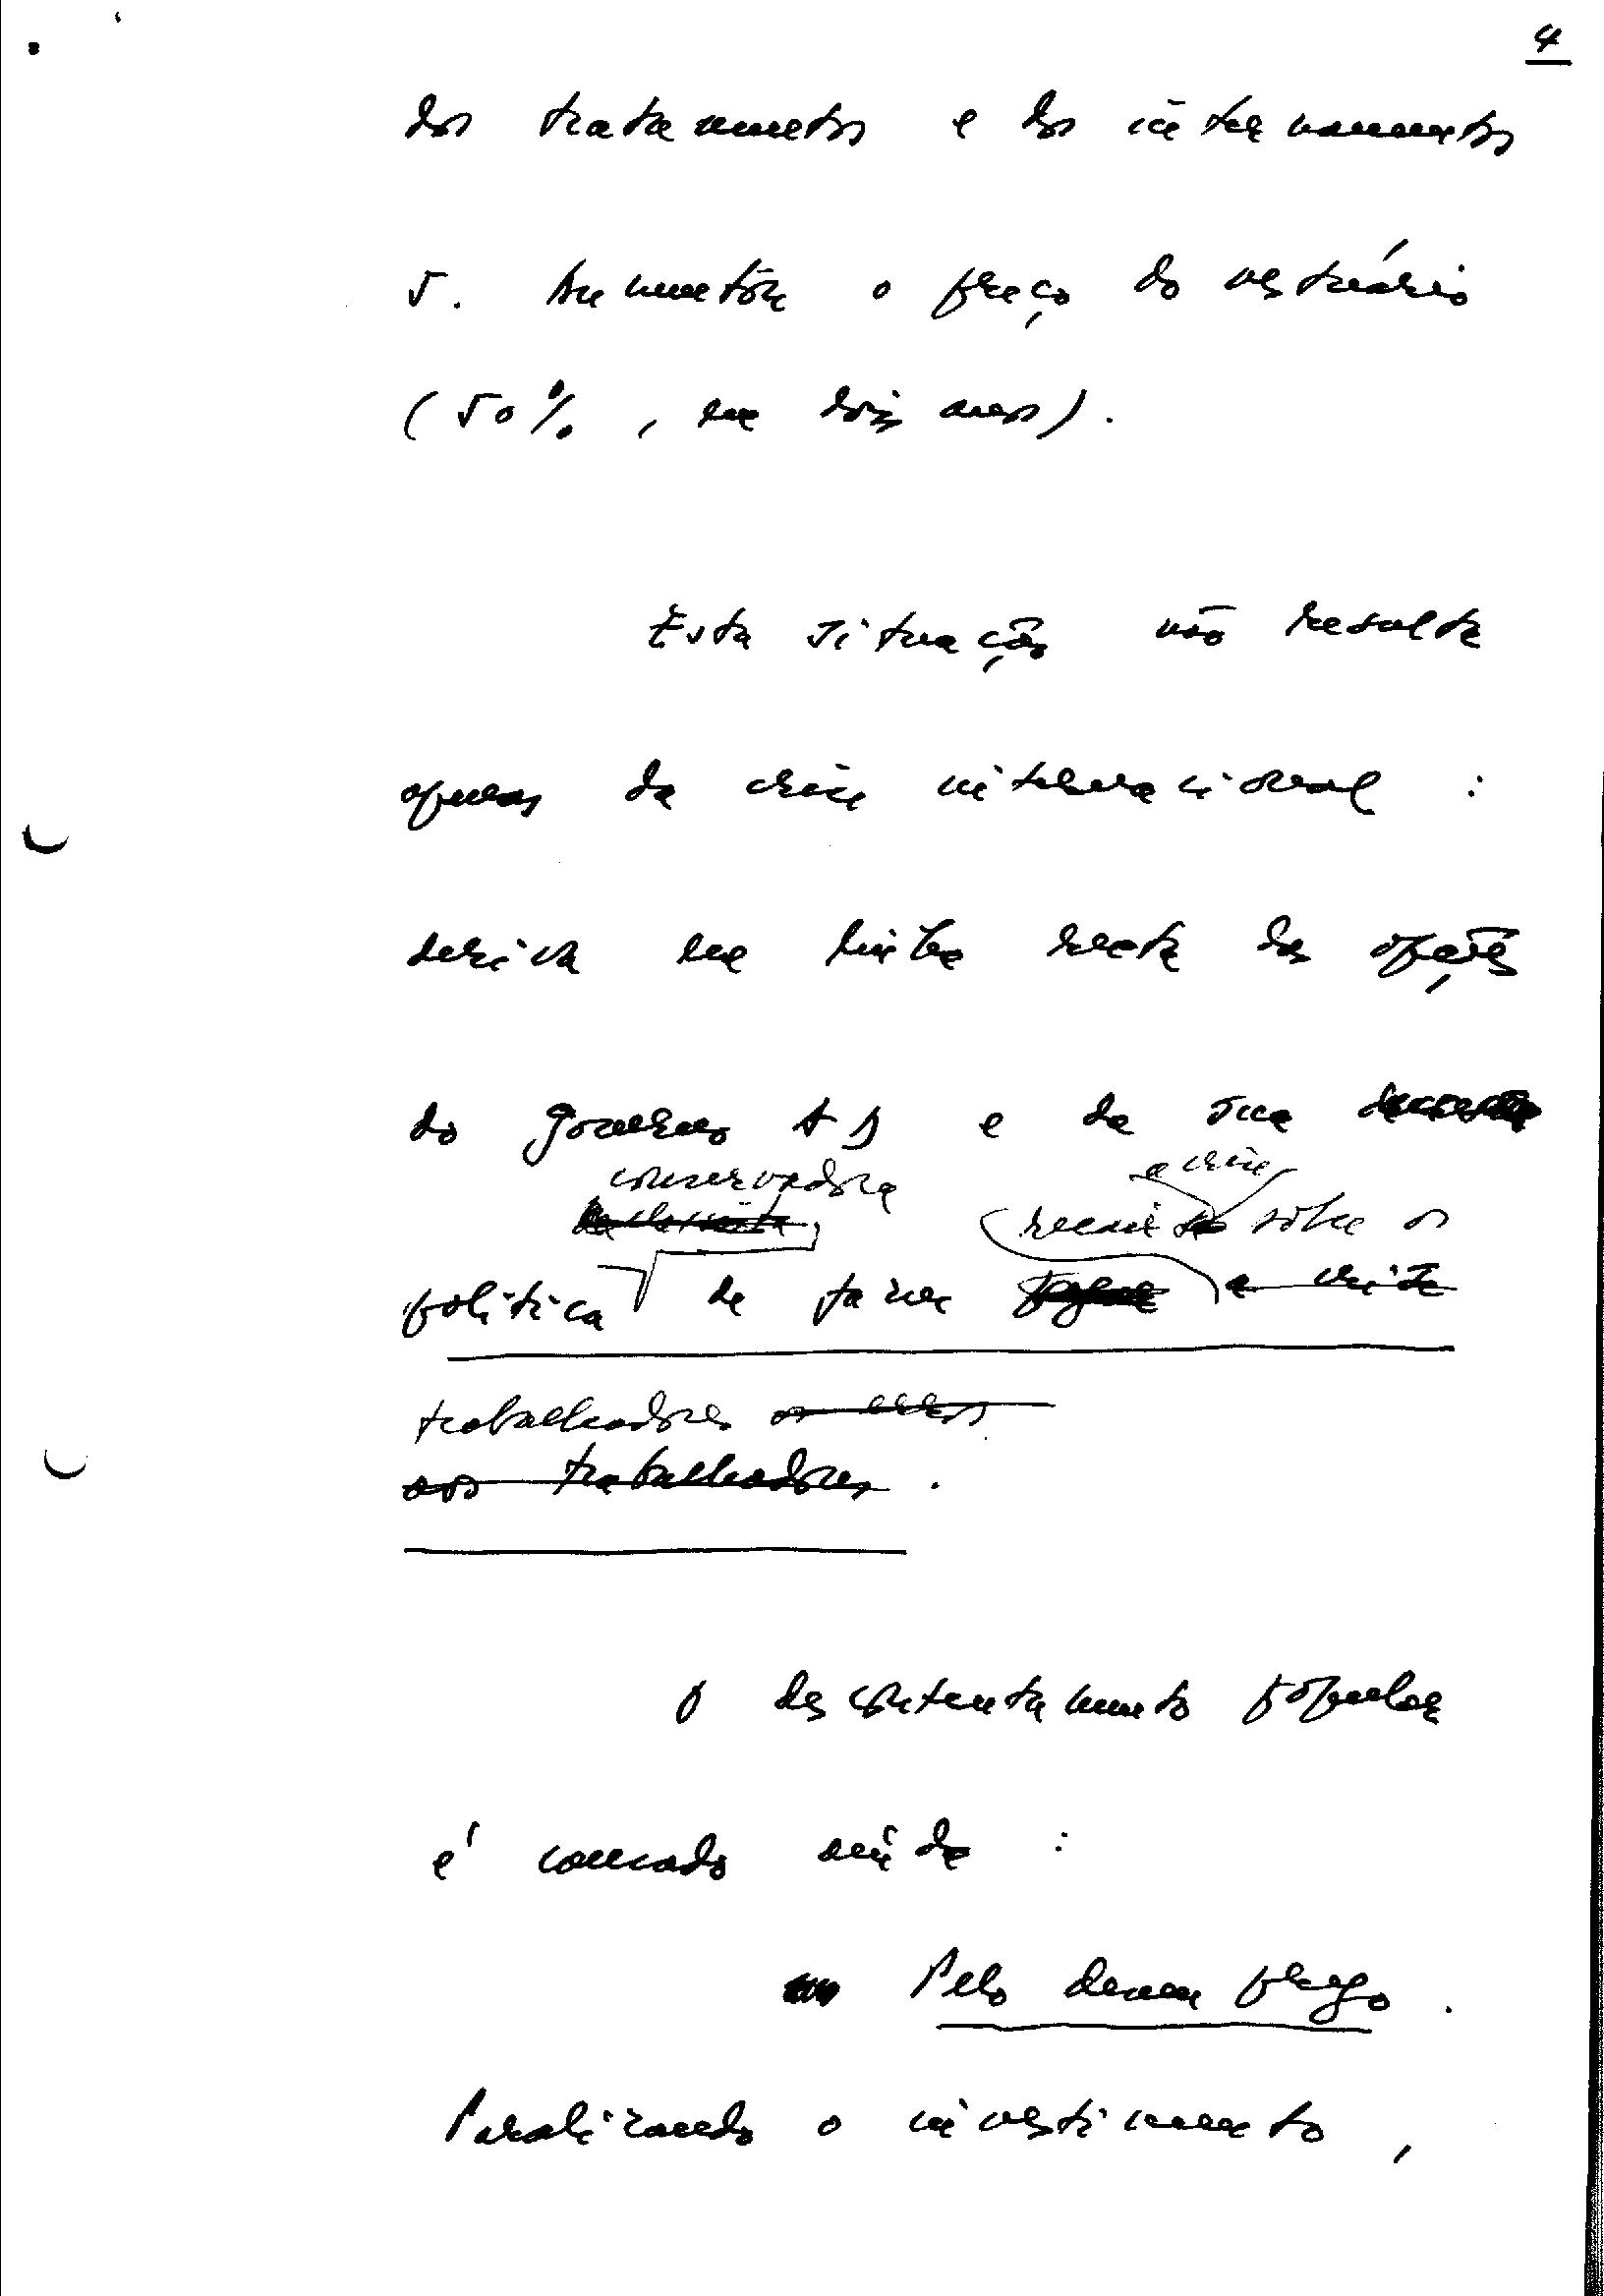 4
dos tratamentos e dos internamentos
5. Aumentou o preço do vestuário
(50%, em dois anos).
Esta situação não resulta
apenas da crise internacional :
deriva em linha recta das opções
do governo AD e da sua
conservadora a crise
recair sobre os
política de fazer a crise
trabalhadores
aos trabalhadores .
O descontentamento popular
é causado ainda :
Pelo desemprego .
Paralizando o investimento ,